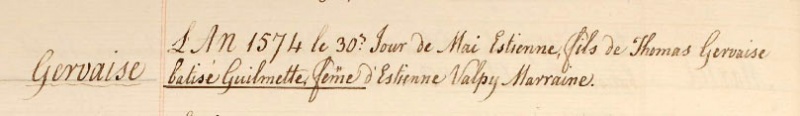 L'AN 1574 le 30.e Jour de Mai Estienne, fils de Thomas Gervaise
Gervaise
batisé Guilmette, feme d'Estienne Valpy Marraine.